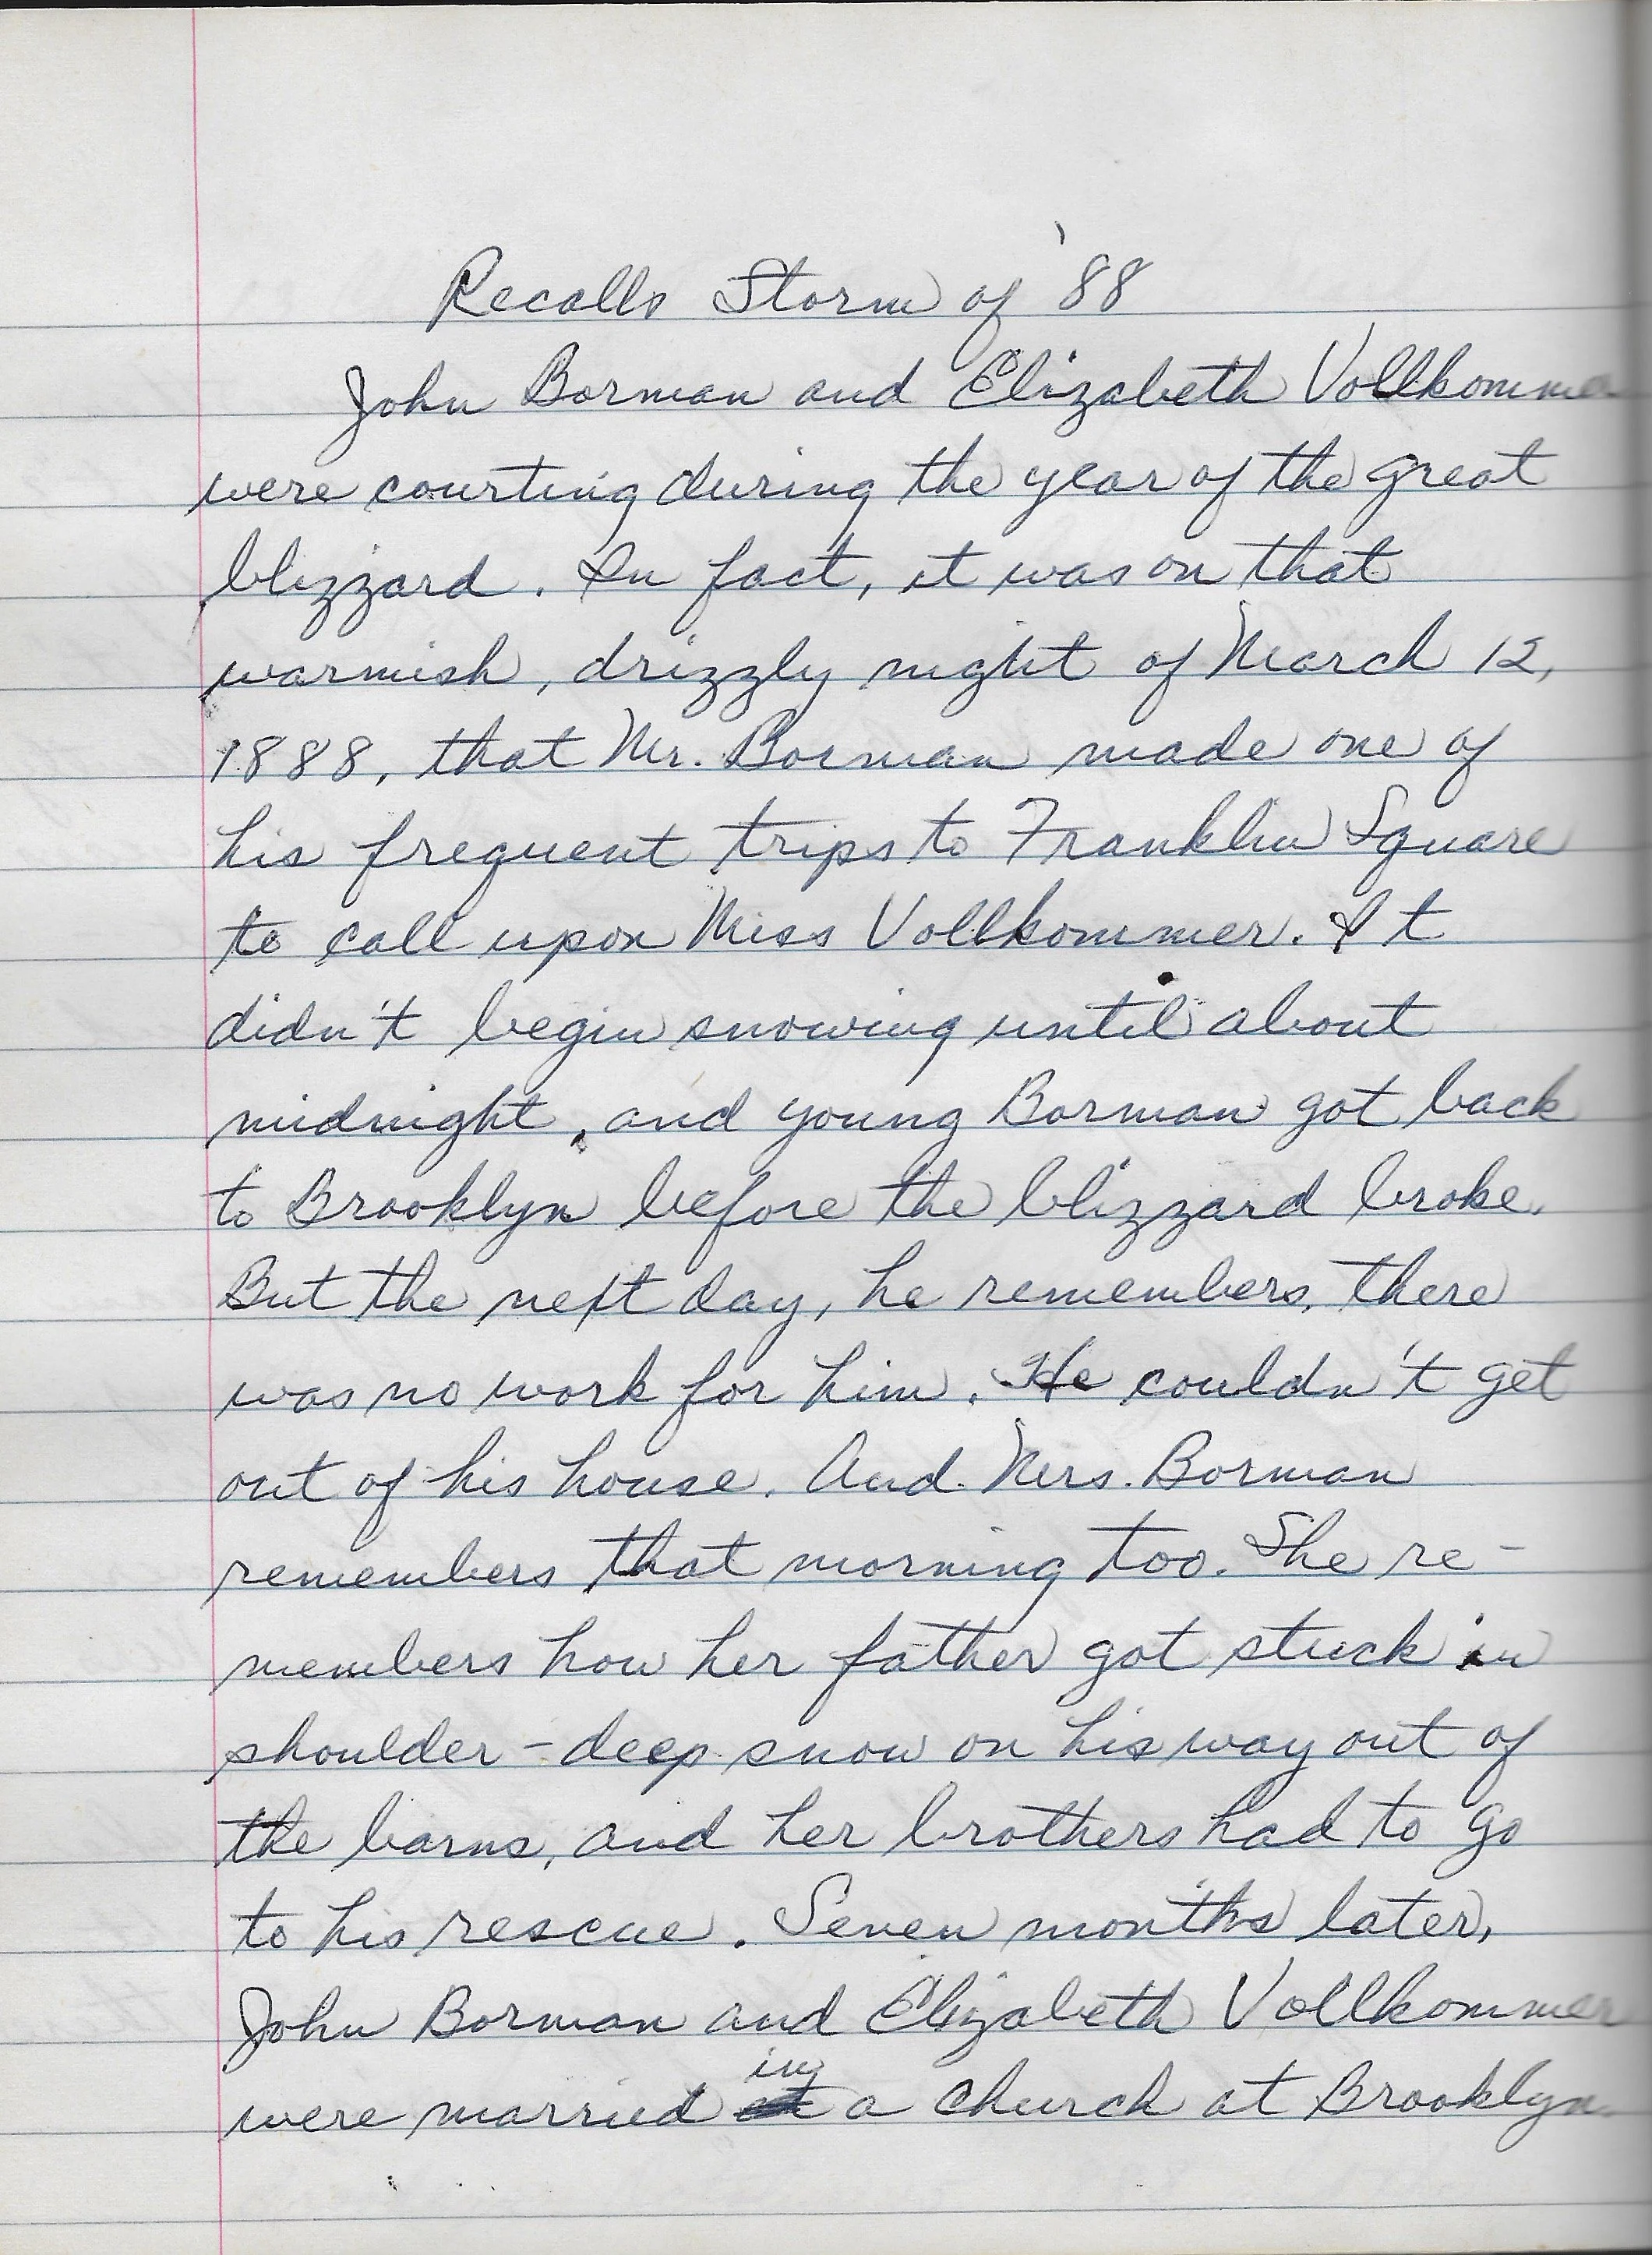 Recalls Storm of '88
John Borman and Elizabeth Vollkommer
were courting during the year of the great
blizzard. In fact, it was on that
warmish, drizzly night of March 12,
1888, that Mr. Borman made one of
his frequent trips to Franklin Square
to call upon Miss Vollkommer. It
didn't begin snowing until about
midnight, and young Borman got back
to Brooklyn before the blizzard broke.
But the next day, he remembers, there
was no work for him. He couldn't get
out of his house. And Mrs. Borman
remembers that morning too. She re-
members how her father got stuck in
shoulder-deep snow on his way out of
the barns, and her brothers had to go
to his rescue. Seven months later,
John Borman and Elizabeth Vollkommer
were married in a church at Brooklyn.